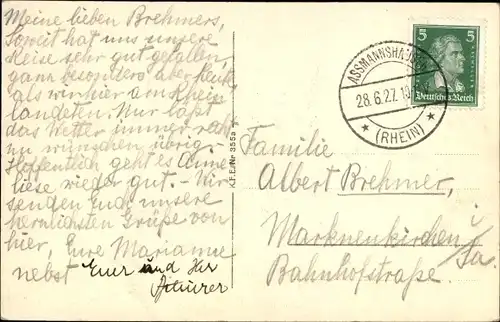 Meine lieben Brehmers,
Soweit hat uns unsere
Reise sehr gut gefallen,
ganz besonders aber heute
als wir hier am Rhein
landeten. Nur läßt
das Wetter immer recht
zu wünschen übrig.
Hoffentlich geht es Anne
liese wieder gut. - Wir
senden Euch unsere
herzlichsten Grüße von
hier, Eure Marianne
nebst
Euer und Ihr
K.F.E. Nr. 355a
ASSMANNSHAUSEN
28.6.27.
* (RHEIN) *
5 5
Deutsches Reich
Familie
Albert Brehmer,
Markneukirchen i/Sa.
Bahnhofstraße.